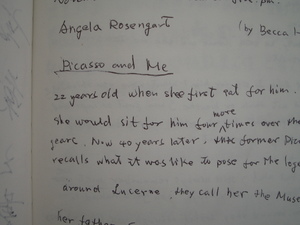 Angela Rosengart (by Becca
Picasso and Me
22 years old when she first sat for him.
She would sit for him four more times over the
years. Now 40 years later, this former Pic
recalls what it was like to pose for the lege
around Lucerne, they call her the Muse
her father